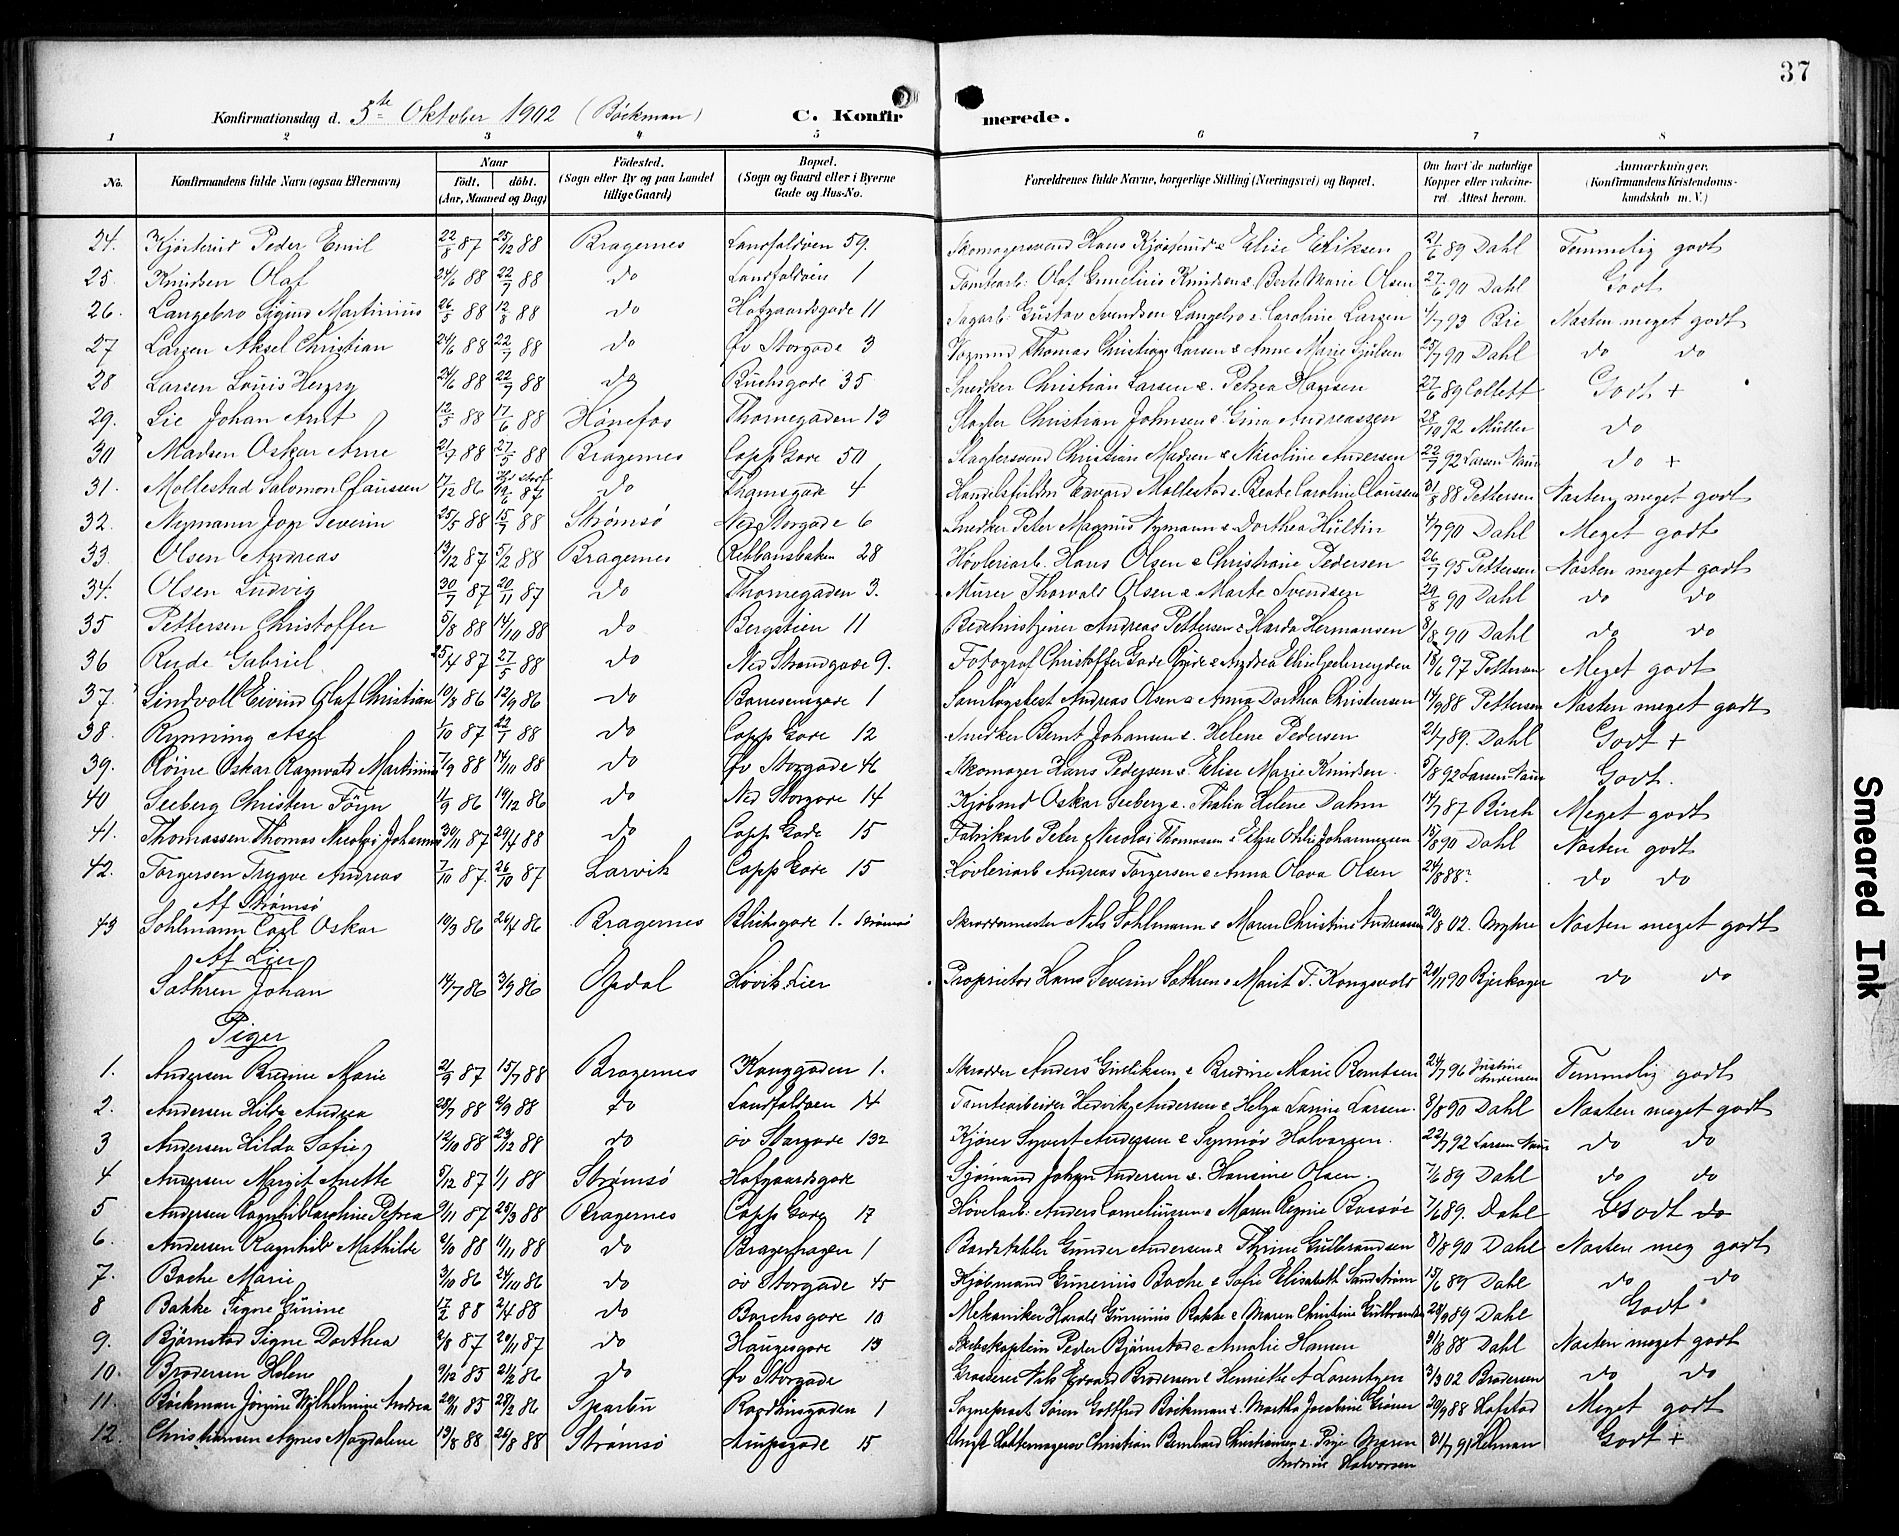 37
Konfirmationsdag d. 5te Oktober 1902 (Böckman) C. Konfirmerede.
1 2 3 4 5 6 7 8
No. Konfirmandens fulde Navn (ogsaa Efternavn) Naar födt. döbt. (Aar, Maaned og Dag) Födested. (Sogn eller By og paa Landet tillige Gaard) Bopæl. (Sogn og Gaard eller i Byerne Gade og Hus-No. Forældrenes fulde Navne, borgerlige Stilling (Næringsvei) og Bopæl. Om havt de naturlige Kopper eller vakcineret. Attest herom. Anmærkninger. (Konfirmandens Kristendomskundskab m. V.)
24. Kjösterud Peder Emil 22/8 87 25/12 88 Bragernes Landfaldöen 59. Skomagersvend Hans Kjösterud & Elise Eriksen 21/6 89 Dahl Temmelig godt
25. Knudsen Olaf 24/6 88 22/7 88 do Landfaldöen 1 Tomtearb. Olaf Knudsen & Berte Marie Olsen 27/6 90 Dahl Godt
26. Langebro Sigurd Martinius 26/5 88 12/8 88 do Hofgaardsgade 11 Sagarb. Gustav Svendsen Langebro & Caroline Larsen 4/7 93 Næsten meget godt
27 Larsen Aksel Christian 24/6 88 22/7 88 do Öv Storgade 3 Thomas Christian Larsen & Anne Marie 25/7 90 Dahl do do
28 Larsen Louis Henry 24/6 88 22/7 88 do Buchsgade 35 Snedker Christian Larsen & Petrea Hansen 27/6 89 Collett Godt +
29. Lie Johan Arnt 12/5 88 17/6 88 Hönefos Thornegaden 13 Slagter Christian Johnsen & Gina Andreassen 28/10 92 Müller do
30 Madsen Oskar Arne 21/7 88 27/5 88 Bragernes Capp Gade 50 Slagtersvend Christian Madsen & Nicoline Andersen 22/7 92 Larsen do +
31. Mollestad Salomon Claussen 17/12 86 19/6 87 do Thamsgade 4 Edvard Mollestad & Beate Caroline Claussen 31/8 88 Pettersen Næsten meget godt
32. Nymann Severin 25/5 88 15/7 88 Strömsö Ned Storgade 6 Snedker Peter Magnus Nymann & Dorthea Hultin 4/7 90 Dahl Meget godt
33. Olsen Andreas 13/12 87 5/2 88 Bragernes Rebbansbakken 28 Hövleriarb. Hans Olsen & Christiane Pedersen 26/7 95 Pettersen Næsten meget godt
34. Olsen Ludvig 30/7 87 20/11 87 do Thornegaden 3. Murer Thorvald Olsen & Marte Svendsen 29/8 90 Dahl do do
35 Pettersen Christoffer 5/8 88 14/10 88 do Bergstien 11 Andreas Pettersen & Harda Hermansen 8/8 90 Dahl do do
36 Rude Gabriel 25/4 87 27/5 88 do Ned Strandgade 9. Fotograf Christoffer Gade Rude & Andrea 18/6 97 Pettersen Meget godt
37. Lindvoll Eivind Olaf Christian 10/8 86 12/9 86 do 1 Andreas Olsen & Anna Dorthea Christensen 14/9 88 Pettersen Næsten meget godt
38. Rynning Axel 1/10 87 22/7 88 do Capp Gade 12 Snedker Bernt Johansen & Helene Pedersen 21/7 89. Dahl Godt +
39. Röine Oskar Ragnvald Martinius 7/9 88 14/10 88 do Öv Storgade 46 Skomager Hans Pedersen & Elise Marie Knudsen. 5/8 92 Larsen Godt.
40 Seeberg Christen Törgn 11/9 86 19/12 86 do Ned Storgade 14 Kjöbmd Oskar Seeberg & Thalia Helene Dahm 14/7 87 Birch Meget godt
41. Thomassen Thomas Nicolai Johannes 30/11 87 29/4 88 do Capp Gade 15 Fabrikarb Peter Nicolai Thomassen & Elise Othilie Johannessen 15/8 90 Dahl Næsten godt
42. Torgersen Trygve Andreas 7/10 87. 26/10 87 Larvik Capp Gade 15 Hövleriarb Andreas Torgersen & Anna Olava Olsen 24/8 88? do do
Af Strömsö
43 Sohlmann Carl Oskar 19/3 86 26/4 86 Bragernes Blichsgade 1. Strömsö Skræddermester Nils Sohlmann & Maren Christine Andreassen 20/8 02. Myhre Næsten meget godt
Af Lier
Sæthren Johan 14/7 86 3/9 86 Opdal Hövik Lier Proprietær Hans Severin Sæthren & Marit T. Kongsvold 20/11 90 Bjerkager do do
Piger
1. Andersen Bredine Marie 21/9 87 15/7 88 Bragernes Konggaden 1. Skrædder Anders Gulliksen & Bredine Marie Berntsen 24/7 96 Justine Andersen Temmelig godt
2. Andersen Hilda Andrea 28/7 88 2/9 88 do Landfaldöen 14 Tomtearbeider Hedvik Andersen & Helga Larine Larsen. 8/8 90 Dahl Næsten meget godt
3 Andersen Hilda Sofie 12/10 88 23/12 88 do öv Storgade 132 Kjörer Syvert Andersen & Synnöv Halvorsen. 22/7 92 Larsen do do
4 Andersen Margit Anette 5/12 87 1/1 88 Strömsö Hofgaardsgade Sjömand Johan Andersen & Hansine Olsen. 7/6 89 Dahl do do
5 Andersen Ragnhild Caroline Petrea 9/11 87 25/3 88 Bragernes Capp Gade 17 Hövelarb. Anders Corneliussen & Maren Regine Bassöe 7/6 89. Dahl Godt do
6. Andersen Ragnhild Mathilde 2/10 88 11/11 88 do Bragerhagen 1 Bordstabler Gunder Andersen & Thrine Gulbrandsen 8/8 90 Dahl Næsten meg godt
7. Bache Marie 3/10 86 24/10 86 do öv Storgade 45 Kjöbmand Gunerius Bache & Sofie Elisabeth Sandström 15/6 89 Dahl do do
8 Bakke Signe Gunine 17/2 88 2/4 88 do Borchsgade 10 Mekaniker Harald Gunerius Bakke & Maren Christine Gulbrandsen 28/9 89 Dahl Godt
9. Björnstad Signe Dorthea 2/8 87 20/11 87 do Haugesgade 13 Skibskaptein Peder Björnstad & Amalie Hansen 31/8 88 Dahl Næsten meget godt
10. Brodersen Helene 9/12 85 21/2 86 do Öv Storgade Grosserer Nils Edvard Brodersen & Henriette A Lorentzen 3/3 02 Brodersen do do
11. Böckman Jörgine Wilhelmine Andrea 20/11 85 28/2 86 Sparbu 1 Sogneprest Sören Gottfred Böckman & Martha Jacobine Gröner 20/9 88 Hofstad Meget godt
12. Christiansen Agnes Magdalene 19/8 88 26/8 88 Strömsö 15 Ungk Christian Bernhard Christiansen & Pige Maren Andrine Halvorsen 31/7 91 Helman Godt +
Smeared Ink